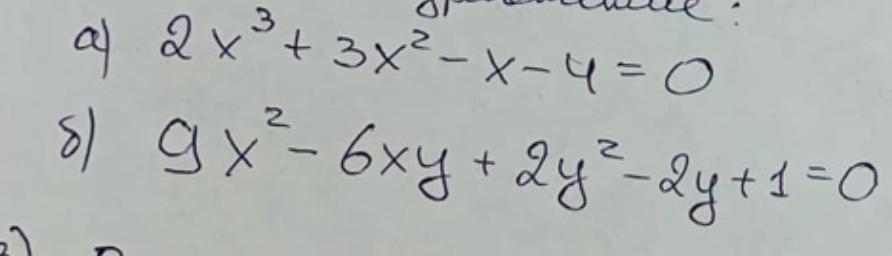 а) 2x³ + 3x² - x - 4 = 0
б) 9x² - 6xy + 2y² - 2y + 1 = 0